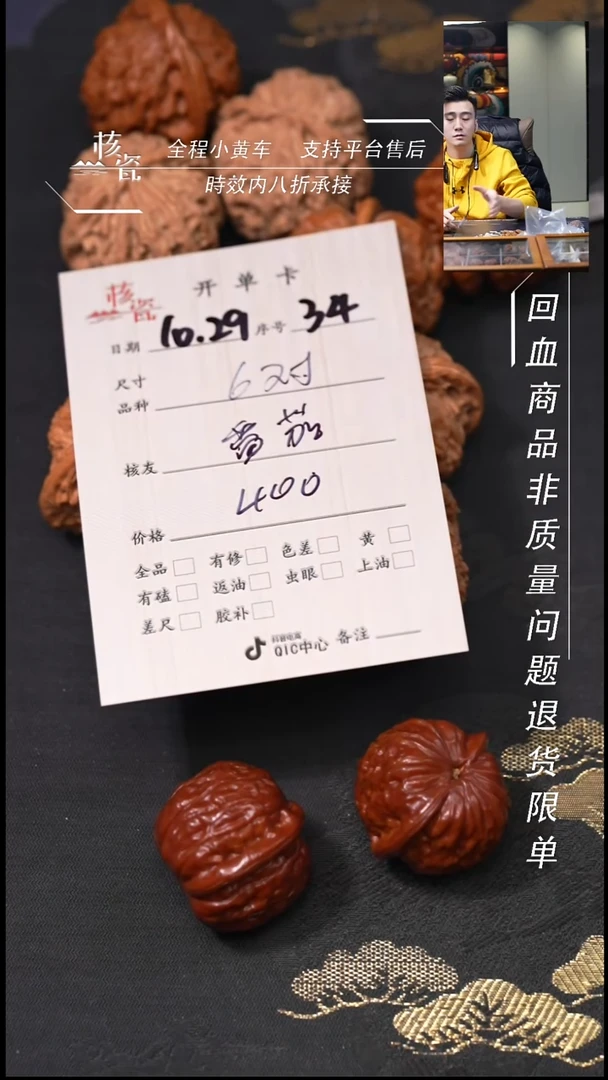 核瓷
全程小黄车 支持平台售后
時效内八折承接
回血商品非质量问题退货限单
核瓷 开单卡
日期 10.29 序号 34
尺寸
品种 6对
核友 番茄
价格 400
全品 有修 色差 黄
有磕 返油 虫眼 上油
差尺 胶补
抖音电商
QIC中心 备注